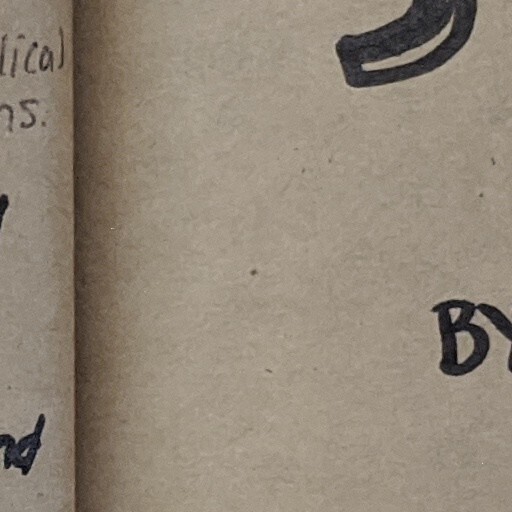 lical
ns.
nd
BY